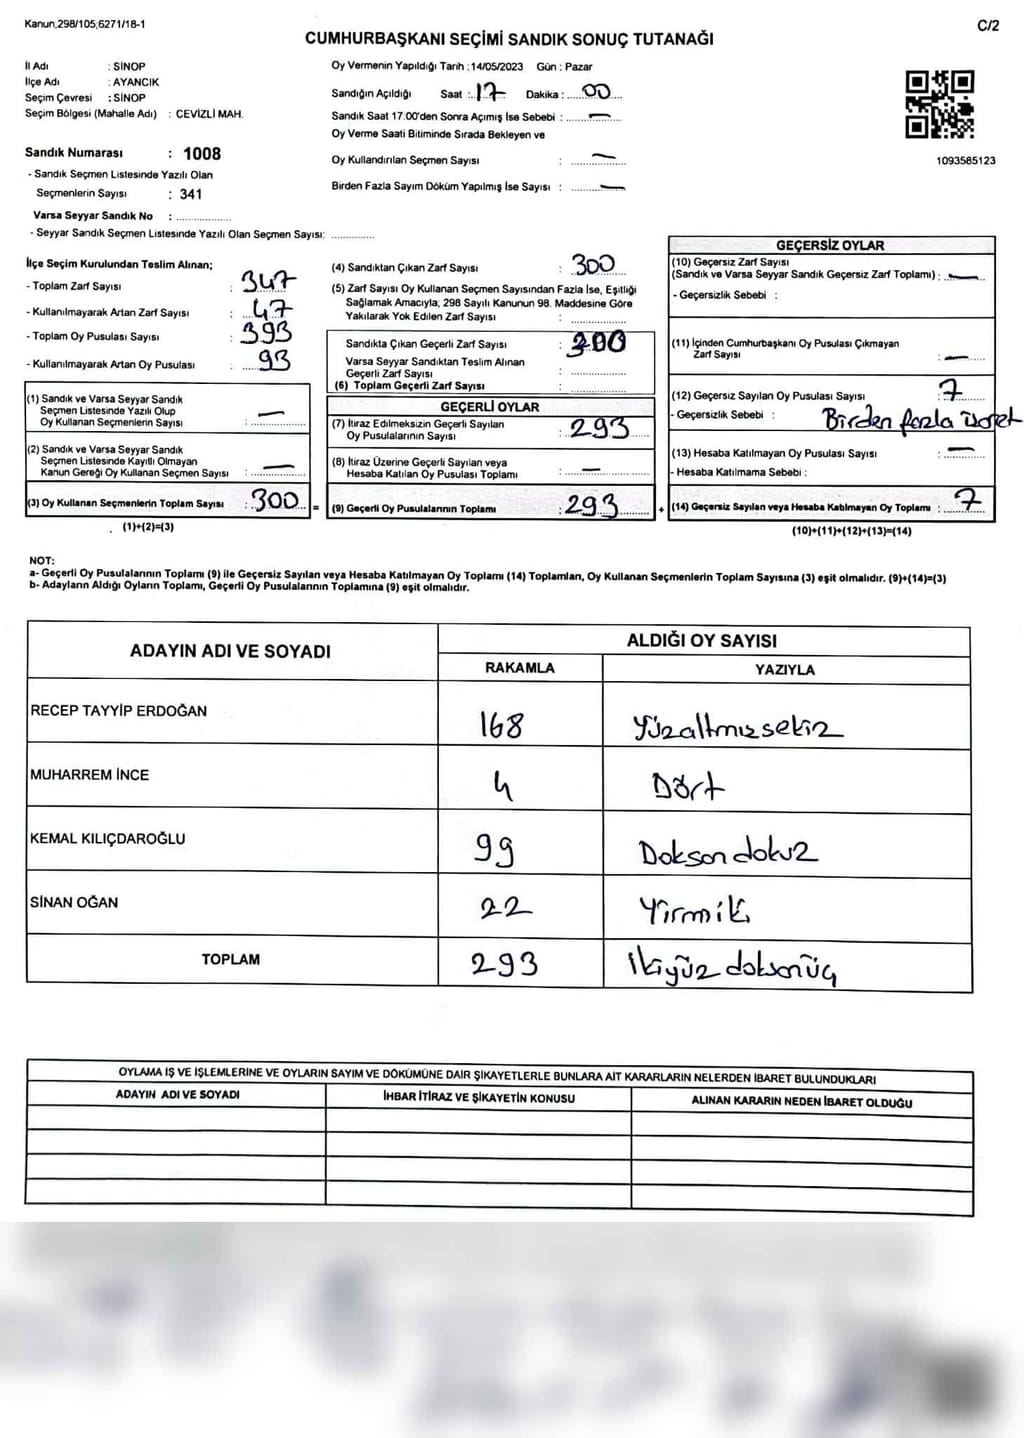 Kanun,298/105,6271/18-1
C/2
CUMHURBAŞKANI SEÇİMİ SANDIK SONUÇ TUTANAĞI
İl Adı : SİNOP
İlçe Adı : AYANCIK
Seçim Çevresi : SİNOP
Seçim Bölgesi (Mahalle Adı) : CEVİZLİ MAH.
Oy Vermenin Yapıldığı Tarih :14/05/2023 Gün : Pazar
Sandığın Açıldığı Saat :..17 Dakika :.....00....
Sandık Saat 17.00'den Sonra Açımış İse Sebebi : —
Oy Verme Saati Bitiminde Sırada Bekleyen ve
Oy Kullandırılan Seçmen Sayısı : —
Birden Fazla Sayım Döküm Yapılmış İse Sayısı : —
1093585123
Sandık Numarası : 1008
- Sandık Seçmen Listesinde Yazılı Olan
Seçmenlerin Sayısı : 341
Varsa Seyyar Sandık No : ..................
- Seyyar Sandık Seçmen Listesinde Yazılı Olan Seçmen Sayısı: ..............
İlçe Seçim Kurulundan Teslim Alınan;
- Toplam Zarf Sayısı : 347
- Kullanılmayarak Artan Zarf Sayısı : 47
- Toplam Oy Pusulası Sayısı : 393
- Kullanılmayarak Artan Oy Pusulası : 93
(1) Sandık ve Varsa Seyyar Sandık
Seçmen Listesinde Yazılı Olup
Oy Kullanan Seçmenlerin Sayısı : —
(2) Sandık ve Varsa Seyyar Sandık
Seçmen Listesinde Kayıtlı Olmayan
Kanun Gereği Oy Kullanan Seçmen Sayısı : —
(3) Oy Kullanan Seçmenlerin Toplam Sayısı : 300 =
(1)+(2)=(3)
(4) Sandıktan Çıkan Zarf Sayısı : 300
(5) Zarf Sayısı Oy Kullanan Seçmen Sayısından Fazla İse, Eşitliği
Sağlamak Amacıyla, 298 Sayılı Kanunun 98. Maddesine Göre
Yakılarak Yok Edilen Zarf Sayısı : ................
Sandıkta Çıkan Geçerli Zarf Sayısı : 300
Varsa Seyyar Sandıktan Teslim Alınan
Geçerli Zarf Sayısı : ................
(6) Toplam Geçerli Zarf Sayısı : ................
GEÇERLİ OYLAR
(7) İtiraz Edilmeksizin Geçerli Sayılan
Oy Pusulalarının Sayısı : 293
(8) İtiraz Üzerine Geçerli Sayılan veya
Hesaba Katılan Oy Pusulası Toplamı : —
(9) Geçerli Oy Pusulalarının Toplamı : 293 +
GEÇERSİZ OYLAR
(10) Geçersiz Zarf Sayısı
(Sandık ve Varsa Seyyar Sandık Geçersiz Zarf Toplamı) : —
- Geçersizlik Sebebi :
(11) İçinden Cumhurbaşkanı Oy Pusulası Çıkmayan
Zarf Sayısı : —
(12) Geçersiz Sayılan Oy Pusulası Sayısı : 7
- Geçersizlik Sebebi : Birden fazla
(13) Hesaba Katılmayan Oy Pusulası Sayısı : —
- Hesaba Katılmama Sebebi :
(14) Geçersiz Sayılan veya Hesaba Katılmayan Oy Toplamı : 7
(10)+(11)+(12)+(13)=(14)
NOT:
a- Geçerli Oy Pusulalarının Toplamı (9) ile Geçersiz Sayılan veya Hesaba Katılmayan Oy Toplamı (14) Toplamları, Oy Kullanan Seçmenlerin Toplam Sayısına (3) eşit olmalıdır. (9)+(14)=(3)
b- Adayların Aldığı Oyların Toplamı, Geçerli Oy Pusulalarının Toplamına (9) eşit olmalıdır.
ADAYIN ADI VE SOYADI
ALDIĞI OY SAYISI
RAKAMLA YAZIYLA
RECEP TAYYİP ERDOĞAN 168 Yüzaltmışsekiz
MUHARREM İNCE 4 Dört
KEMAL KILIÇDAROĞLU 99 Doksondokuz
SİNAN OĞAN 22 Yirmiki
TOPLAM 293 İkiyüz doksonüç
OYLAMA İŞ VE İŞLEMLERİNE VE OYLARIN SAYIM VE DÖKÜMÜNE DAİR ŞİKAYETLERLE BUNLARA AİT KARARLARIN NELERDEN İBARET BULUNDUKLARI
ADAYIN ADI VE SOYADI İHBAR İTİRAZ VE ŞİKAYETİN KONUSU ALINAN KARARIN NEDEN İBARET OLDUĞU